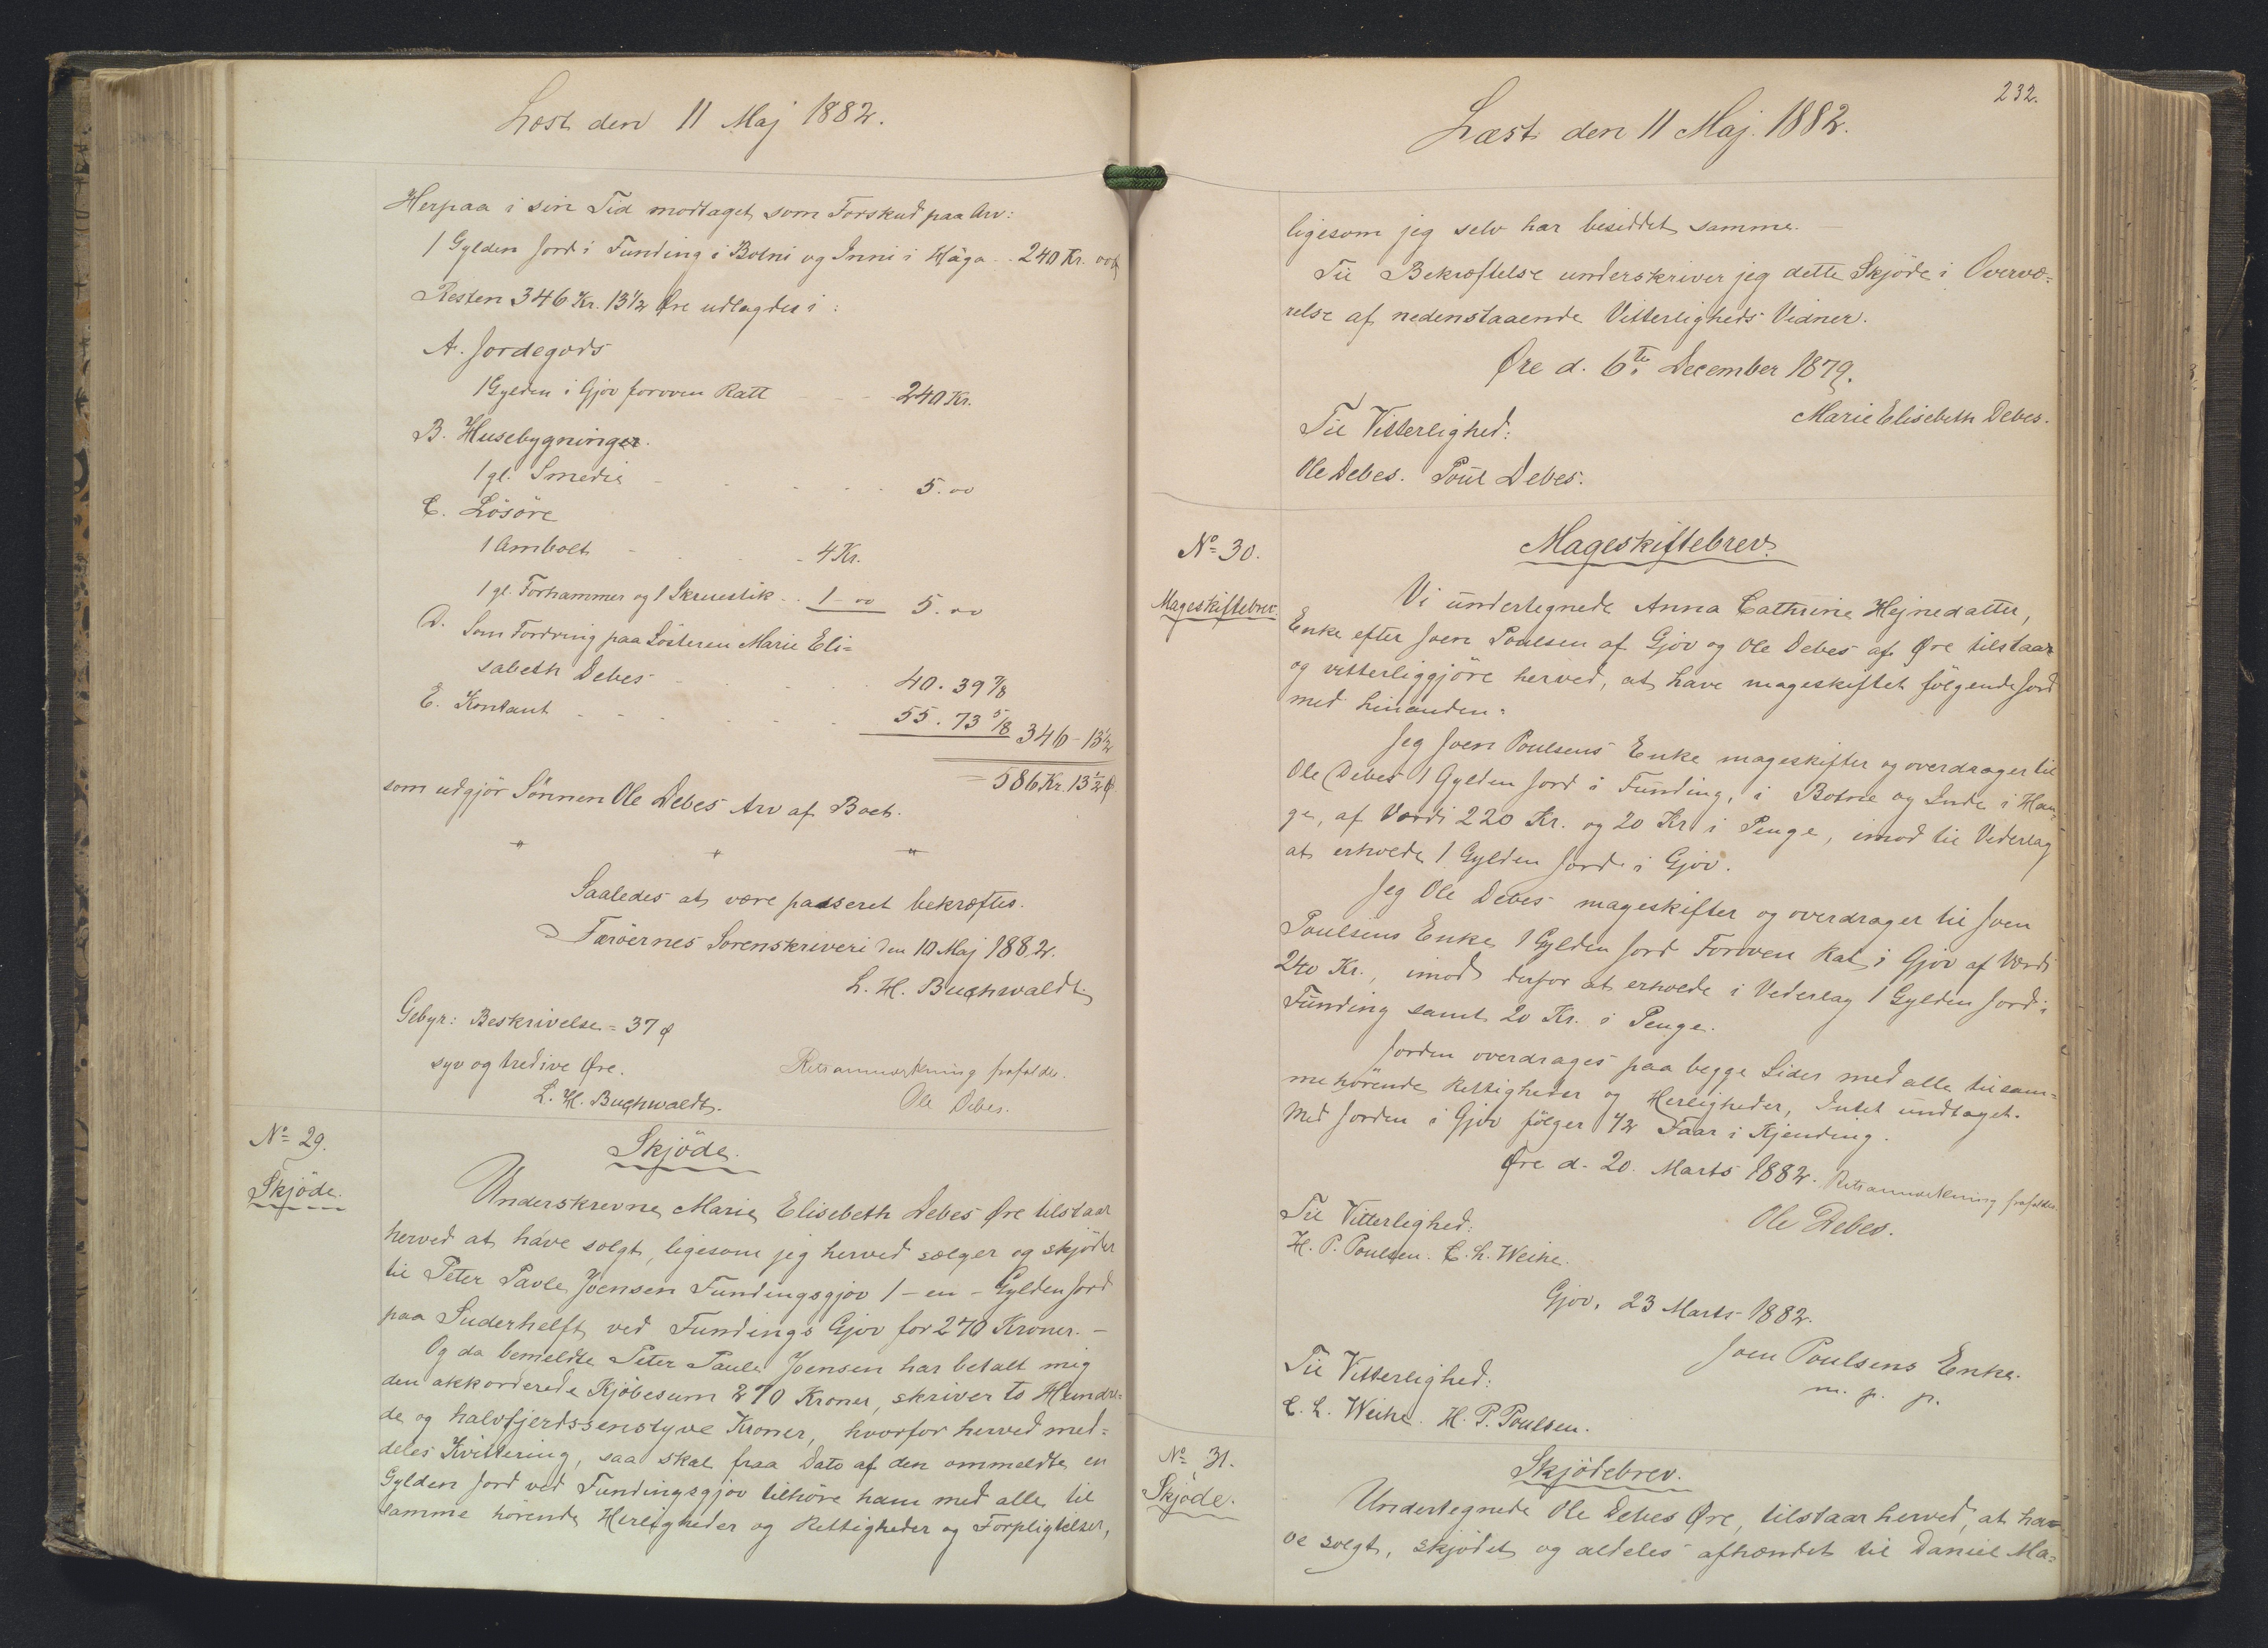 Læst den 11 Maj 1882.
Herpaa i sin Tid modtaget som Forskud paa Arv:
1 Gylden Jord i Funding i Botni og Inni i Håga .. 240 Kr. 00 ø
Resten 346 Kr. 13 1/2 Øre udlagdes i:
A. Jordegods
1 Gylden i Gjov foroven Ratt - - - 240 Kr.
B. Husebygninger.
1 gl. Smedie - - - 5.00
C. Lösöre
1 Ambolt - - - 4 Kr.
1 gl. Forhammer og 1 Skruestik .. 1-00 5.00
D. Som Fordring paa Sösteren Marie Eli=
sabeth Debes - - - 40.39 7/8
E. Kontant - - - 55.73 5/8 346-13 1/2
= 586 Kr. 13 1/2 ø
som udgjör Sönnen Ole Debes Arv af Boet.
" " "
Saaledes at være passeret bekræftes.
Færöernes Sorenskriveri den 10 Maj 1882.
L. H. Buchwaldt.
Gebyr: Beskrivelse = 37 ø
syv og tredive Øre.
L. H. Buchwaldt.
Retsanmærkning frafaldes.
Ole Debes.
No 29.
Skjöde.
Skjöde.
Underskrevne Marie Elisebeth Debes Øre tilstaar
herved at have solgt, ligesom jeg herved sælger og skjöder
til Peter Pavle Joensen Fundingsgjov 1 - en - Gylden Jord
paa Suderhelft ved Fundings Gjov for 270 Kroner. -
Og da bemeldte Peter Paule Joensen har betalt mig
den akkorderede Kjöbesum 270 Kroner, skriver to Hundre=
de og halvfjerdssenstyve Kroner, hvorfor herved med=
deles Kvittering, saa skal fraa Dato af den ommeldte en
Gylden Jord ved Fundingsgjov tilhöre ham med alle til
samme hörende Herligheder og Rettigheder og Forpligtelser,
232.
Læst den 11 Maj. 1882.
ligesom jeg selv har besiddet samme. -
Til Bekræftelse underskriver jeg dette Skjöde i Overvæ=
relse af nedenstaaende Vitterligheds Vidner.
Øre d. 6te December 1879.
Marie Elisebeth Debes.
Til Vitterlighed:
Ole Debes. Poul Debes.
No 30.
Mageskiftebrev
Mageskiftebrev.
Vi undertegnede Anna Cathrine Hejnedatter,
Enke efter Joen Poulsen af Gjov og Ole Debes af Øre tilstaar
og vitterliggjöre herved, at have mageskiftet fölgende Jord
med hinanden:
Jeg Joen Poulsens Enke mageskifter og overdrager til
Ole Debes 1 Gylden Jord i Funding, i Botne og Inde i Hau=
ge, af Værdi 220 Kr. og 20 Kr i Penge, imod til Vederlag
at erholde 1 Gylden Jord i Gjov.
Jeg Ole Debes mageskifter og overdrager til Joen
Poulsens Enke 1 Gylden Jord Foroven Rat i Gjov af Værdi
240 Kr., imod derfor at erholde i Vederlag 1 Gylden Jord i
Funding samt 20 Kr. i Penge.
Jorden overdrages paa begge Sider med alle til sam=
me hörende Rettigheder og Herligheder, Intet undtaget.
Med Jorden i Gjov fölger 1/2 Faar i Kjending.
Øre d. 20. Marts 1882. Retsanmærkning frafaldes.
Til Vitterlighed: Ole Debes.
H. P. Poulsen. C. L. Weihe.
Gjov, 23 Marts 1882.
Joen Poulsens Enke.
m. p. p.
Til Vitterlighed:
C. L. Weihe. H. P. Poulsen.
No 31.
Skjöde.
Skjödebrev.
Undertegnede Ole Debes Øre, tilstaar herved, at ha=
ve solgt, skjödet og aldeles afhændet til Daniel Ma=